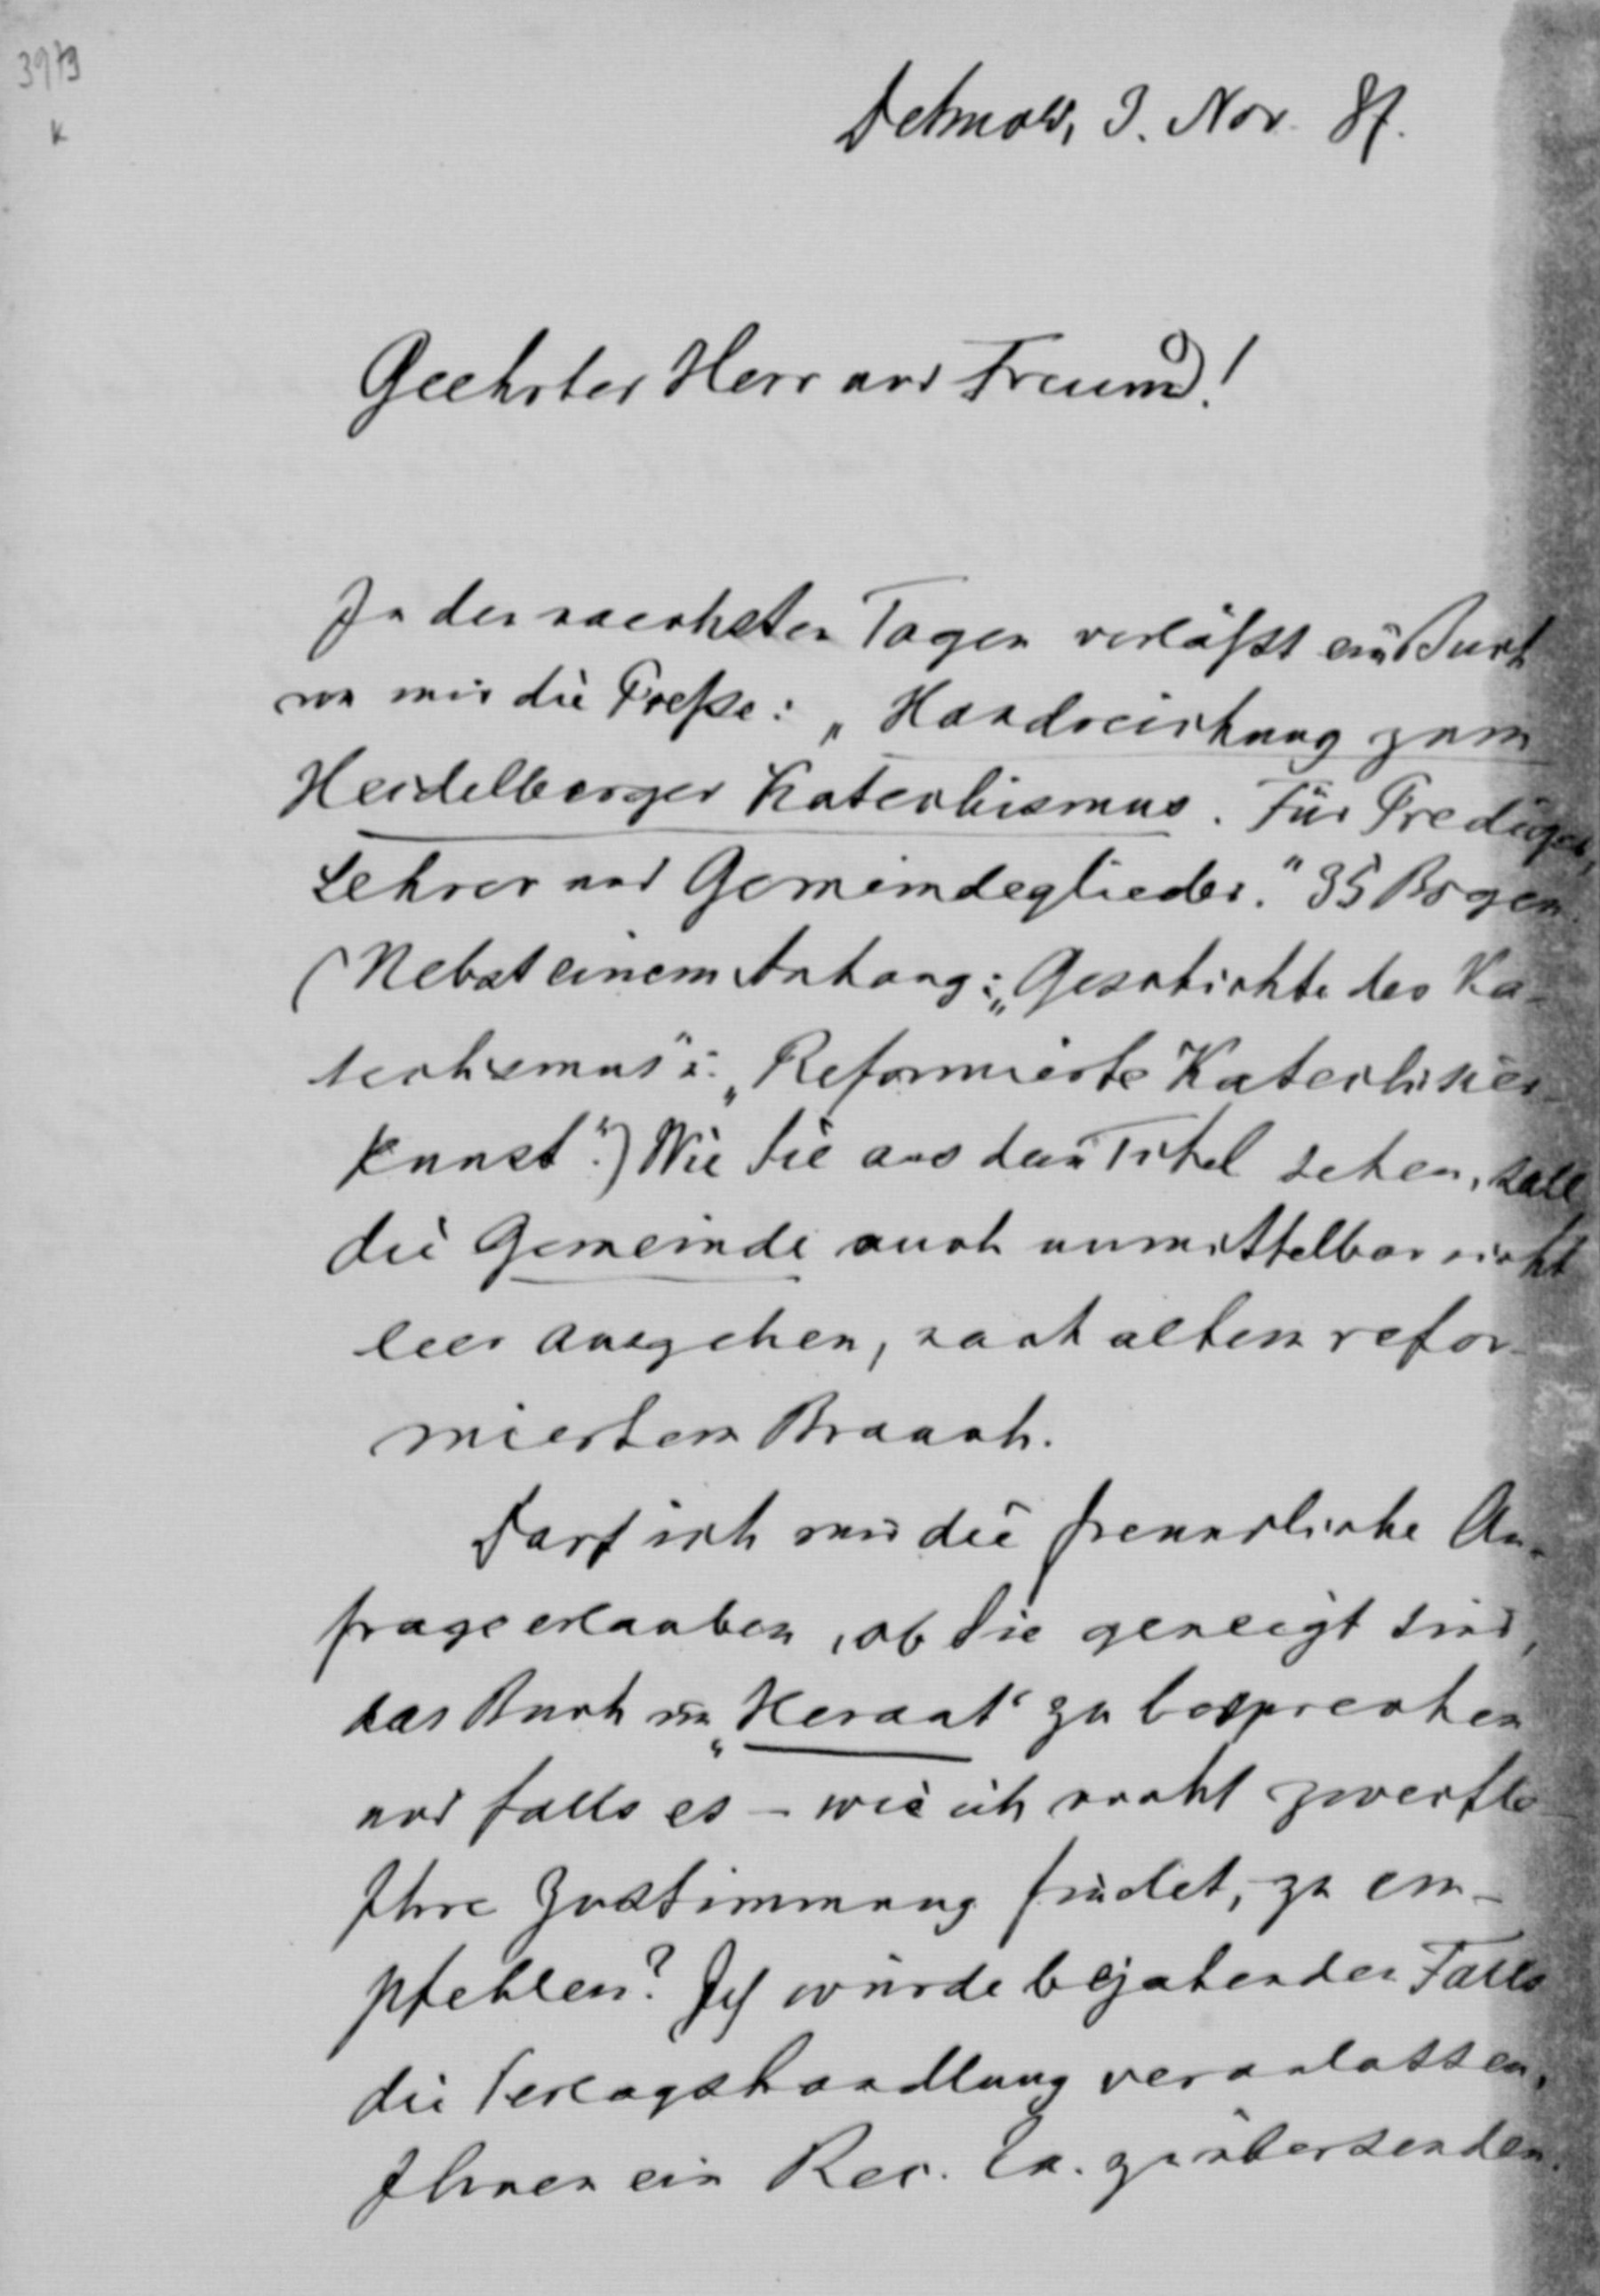 3979
K
Detmold, 3. Nov. 87.
Geehrter Herr und Freund!
In den naechsten Tagen verläßt ein Buch
von mir die Preße: „Handreichung zum
Heidelberger Katechismus. Für Prediger,
Lehrer und Gemeindeglieder." 35 Bogen.
(Nebst einem Anhang: „Geschichte des Ka-
techismus" u. „Reformierte Katechisier-
kunst".) Wie Sie aus dem Titel sehen, soll
die Gemeinde auch unmittelbar nicht
leer ausgehen, nach altem refor-
miertem Brauch.
Darf ich mir die freundliche An-
frage erlauben, ob Sie geneigt sind,
das Buch im „Heraut" zu besprechen
und falls es – wie ich nicht zweifle –
Ihre Zustimmung findet, zu em-
pfehlen? Ich würde bejahenden Falls
die Verlagshandlung veranlassen,
Ihnen ein Rec. Ex. zu übersenden.